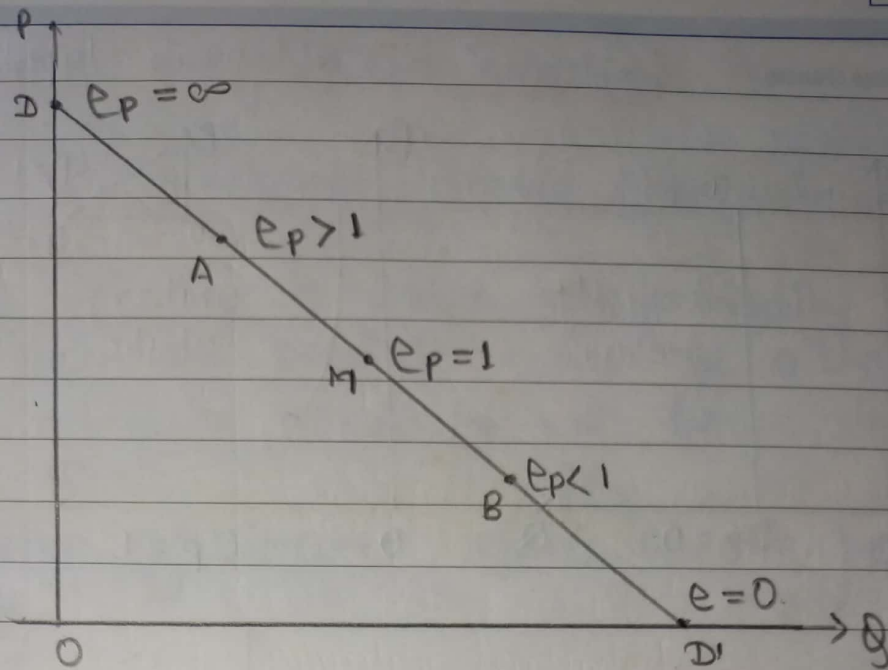 P
D eₚ = ∞
A eₚ > 1
M eₚ = 1
B eₚ < 1
e = 0
O D' Q